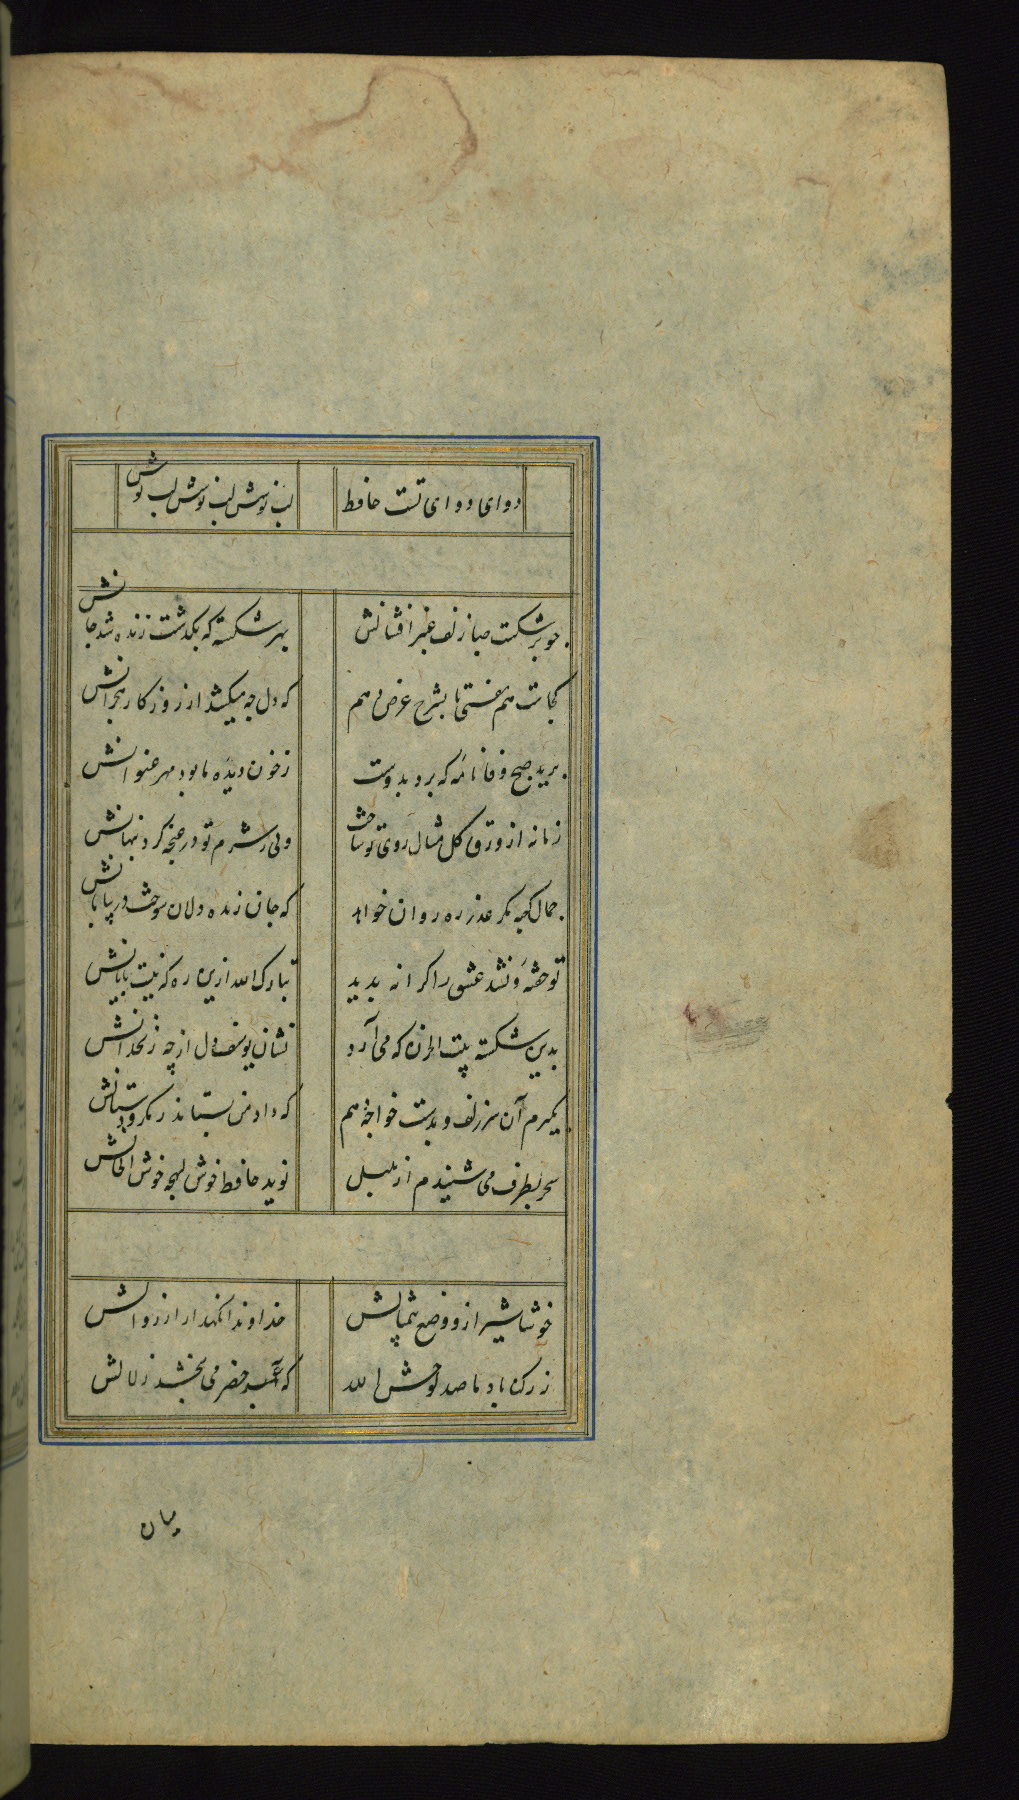 دوای دوای تست حافظ لب نوشش لب نوشش لب نوش
چو برشکست صبا زلف عنبر افشانش بهر شکسته که بگذشت زنده شد جانش
کجاست هم نفسی تا بشرح عرض دهم که دل چه میکشد از روزکار هجرانش
برید صبح وفا نامه که برد بدوست ز خون دیده ما بود مهر عنوانش
زمانه از ورق کل مثال روی تو ساخت ولی ز شرم تو در غنچه کرد پنهانش
جمال کعبه مکر عذر ره روان خواهد که جان زنده دلان سوخت در بیابانش
تو خفته و نشد عشق را کرانه بدید تبارک الله ازین ره که نیست پایانش
بدین شکسته بیت الحزن که می آرد نشان یوسف دل از چه زنخدانش
بگیرم آن سر زلف و بدست خواجه دهم که داد من بستاند ز مکر و دستانش
سحر بطرف می شنیدم از بلبل نوید حافظ خوش لهجه خوش الحانش
خوشا شیراز و وضع بیمثالش خداوندا نکهدار از زوالش
ز رکن باد ما صد لوحش الله که آب خضر می بخشد زلالش
میان